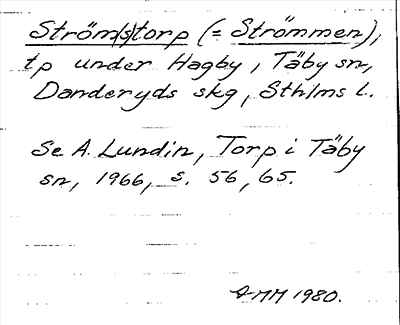 Ström(s)torp (= Strömmen),
tp under Hagby, Täby sn,
Danderyds skg, Sthlms l.
Se A. Lundin, Torp i Täby
sn, 1966, s. 56, 65.
MM 1980.